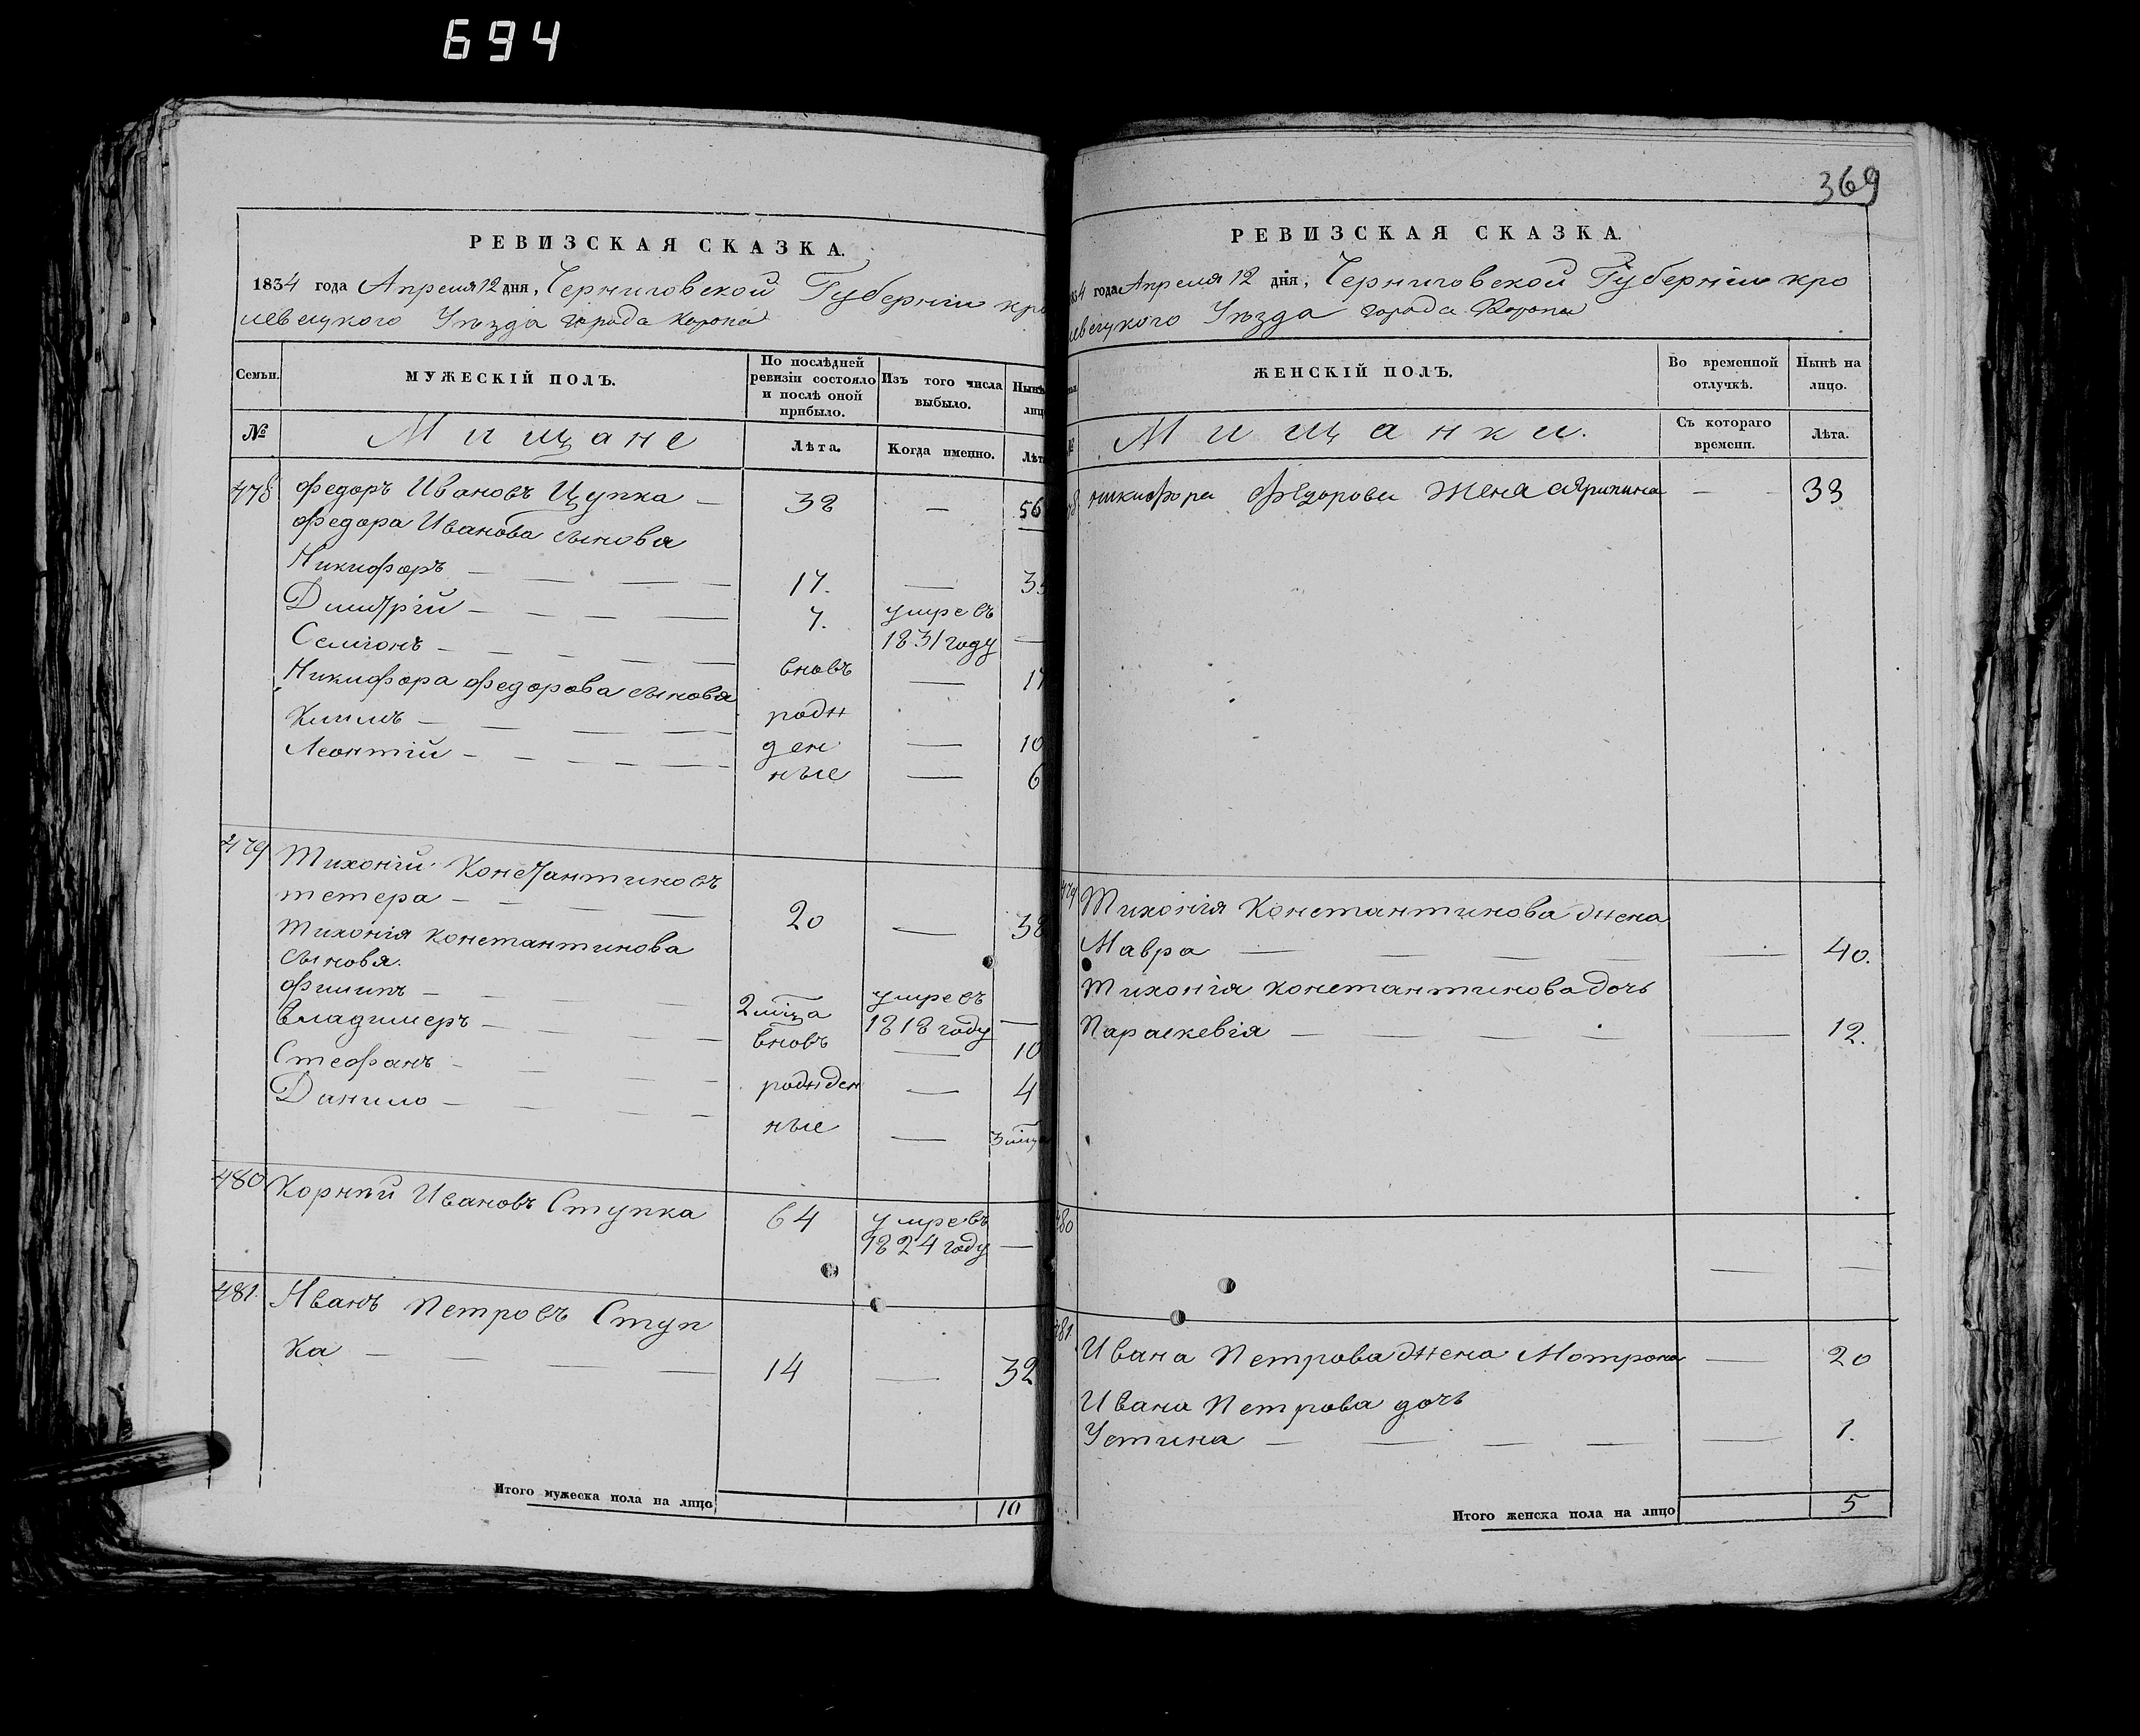 694
РЕВИЗСКАЯ СКАЗКА.
1834 года Апреля 12 дня, Черниговской Губернiи кро
левецкого Уѣзда города Коропа
Семьи.
МУЖЕСКIЙ ПОЛЪ.
По послѣдней ревизiи состояло и послѣ оной прибыло.
Изъ того числа выбыло.
Нынѣ
лиц
№
Мищане
Лѣта.
Когда именно.
Лѣт
478 Федоръ Ивановъ Цупка — 38 — 56
Федора Иванова сыновя
Никифоръ — — — — 17. — 3
Димитрiй — — — — 7. умре въ 1831 году —
Семiонъ — — — — — вновь — 17
Никифора Федорова сыновя
Климъ — — — — рож — 10
Леонтiй — — — — — ден ные — 6
479 Тихонiй Константиновъ
тетера — — — — 20 — 38
Тихонiя Константинова
сыновя.
Филипъ — — — 2 мца умре въ 1818 году —
Владимеръ — — — вновь — 10
Стефанъ — — — рожден — 4
Данило — — — — ные — 3 мца
480 Корнѣй Ивановъ Ступка 64 умре въ
1824 году —
481. Иванъ Петровъ Ступ
ка — — — — 14 — 32
Итого мужеска пола на лицо 10
369
РЕВИЗСКАЯ СКАЗКА.
834 года Апреля 12 дня, Черниговской Губернiи кро
левецкого Уѣзда города Коропа
ЖЕНСКIЙ ПОЛЪ.
Во временной отлучкѣ.
Нынѣ на лицо.
№
Мищанки.
Съ котораго времени.
Лѣта.
Никифора Федорова жена Агрипина — — 33
479 Тихонiя Константинова жена
Мавра — — — — — 40.
Тихонiя Константинова дочь
Параскевiя — — — — 12.
480 — —
481. Ивана Петрова жена Мотрона — 20
Ивана Петрова дочь
Устина — — — — — 1.
Итого женска пола на лицо 5